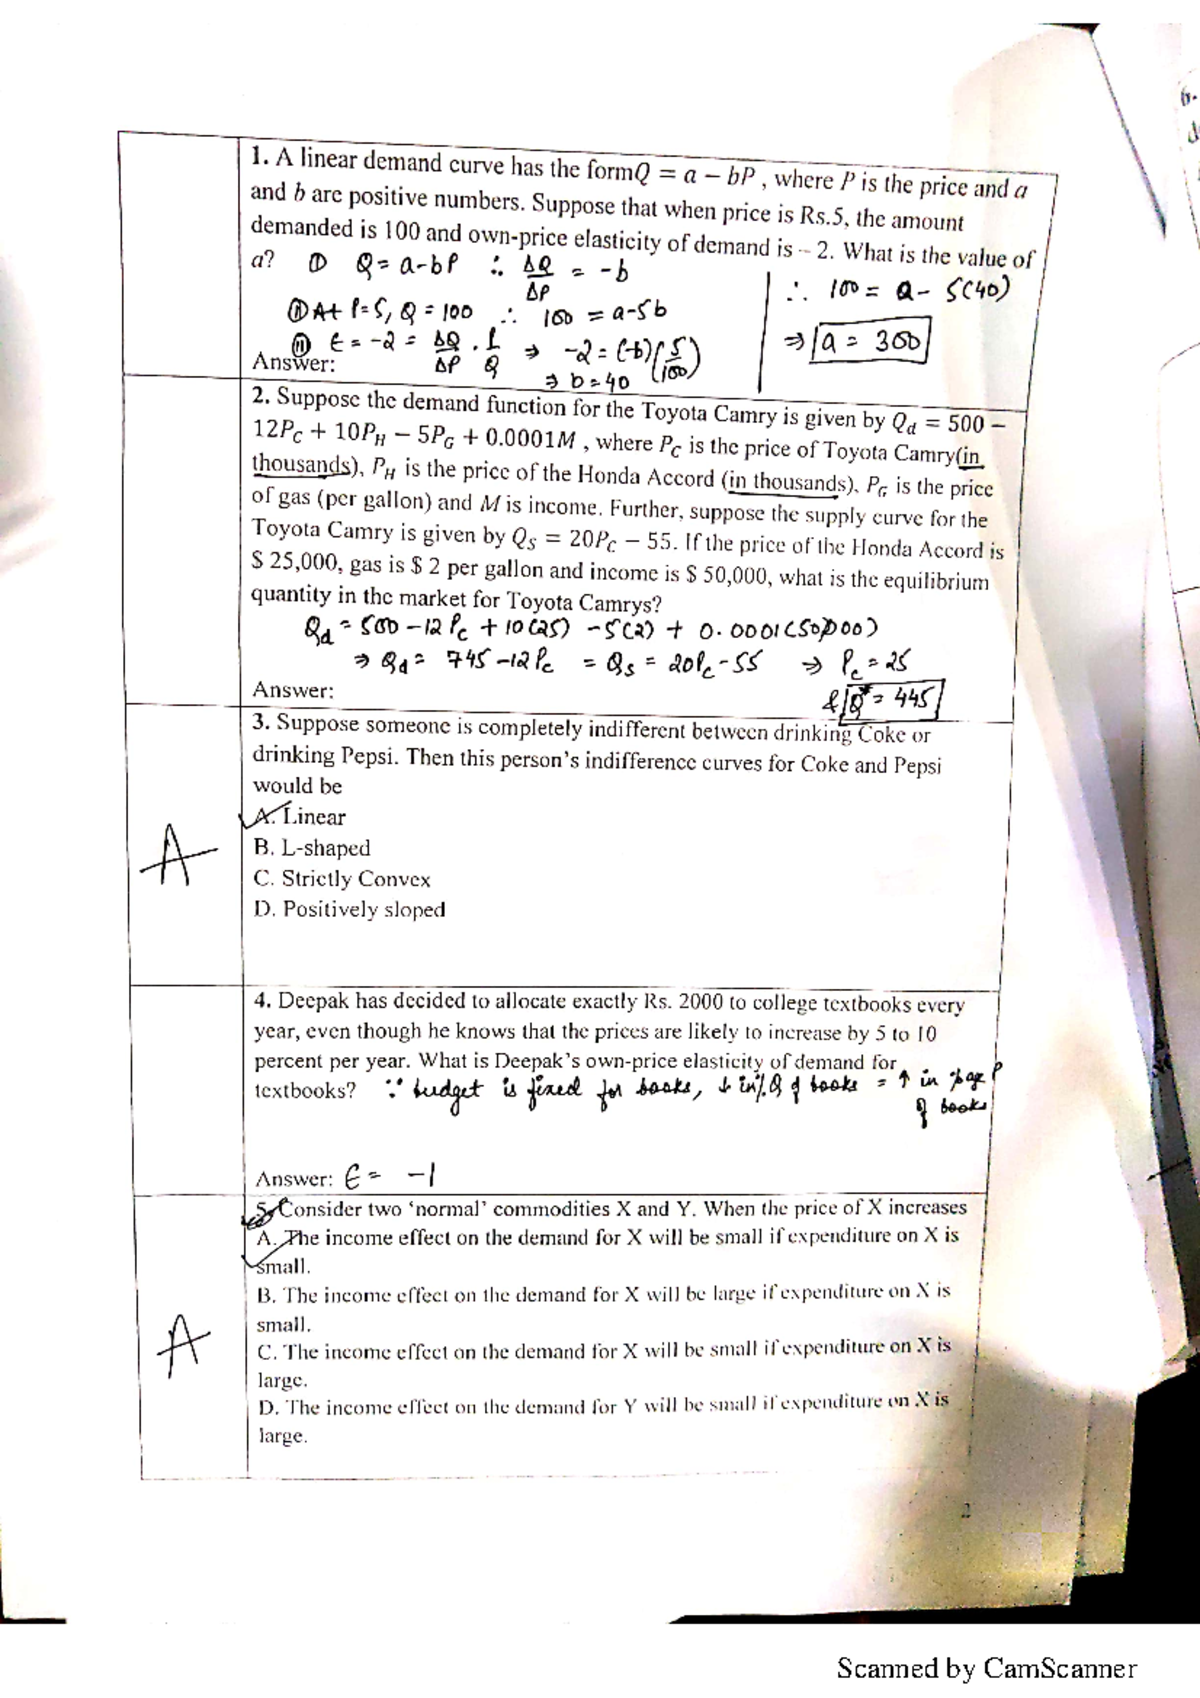 1. A linear demand curve has the formQ = a − bP , where P is the price and a
and b are positive numbers. Suppose that when price is Rs.5, the amount
demanded is 100 and own-price elasticity of demand is -- 2. What is the value of
a? ① Q = a-bP ∴ ΔQ/ΔP = -b
∴ 100 = a - 5(40)
⑪ At P=5, Q = 100 ∴ 100 = a-5b
⇒ a = 300
⑪ E = -2 = ΔQ/ΔP . P/Q ⇒ -2 = (-b)(5/100)
Answer:
⇒ b = 40
2. Suppose the demand function for the Toyota Camry is given by Qd = 500 −
12PC + 10PH − 5PG + 0.0001M , where PC is the price of Toyota Camry(in
thousands), PH is the price of the Honda Accord (in thousands), PG is the price
of gas (per gallon) and M is income. Further, suppose the supply curve for the
Toyota Camry is given by QS = 20PC − 55. If the price of the Honda Accord is
$ 25,000, gas is $ 2 per gallon and income is $ 50,000, what is the equilibrium
quantity in the market for Toyota Camrys?
Qd = 500 - 12 Pc + 10(25) - 5(2) + 0.0001(50,000)
⇒ Qd = 745 - 12Pc = Qs = 20Pc - 55 ⇒ Pc = 25
Answer:
& Q* = 445
3. Suppose someone is completely indifferent between drinking Coke or
drinking Pepsi. Then this person's indifference curves for Coke and Pepsi
would be
A. Linear
A
B. L-shaped
C. Strictly Convex
D. Positively sloped
4. Deepak has decided to allocate exactly Rs. 2000 to college textbooks every
year, even though he knows that the prices are likely to increase by 5 to 10
percent per year. What is Deepak's own-price elasticity of demand for
textbooks? ∵ budget is fixed for books, ↓ in % Q of books = ↑ in %age P
of books
Answer: E = -1
5. Consider two 'normal' commodities X and Y. When the price of X increases
A. The income effect on the demand for X will be small if expenditure on X is
small.
B. The income effect on the demand for X will be large if expenditure on X is
small.
A
C. The income effect on the demand for X will be small if expenditure on X is
large.
D. The income effect on the demand for Y will be small if expenditure on X is
large.
2
Scanned by CamScanner